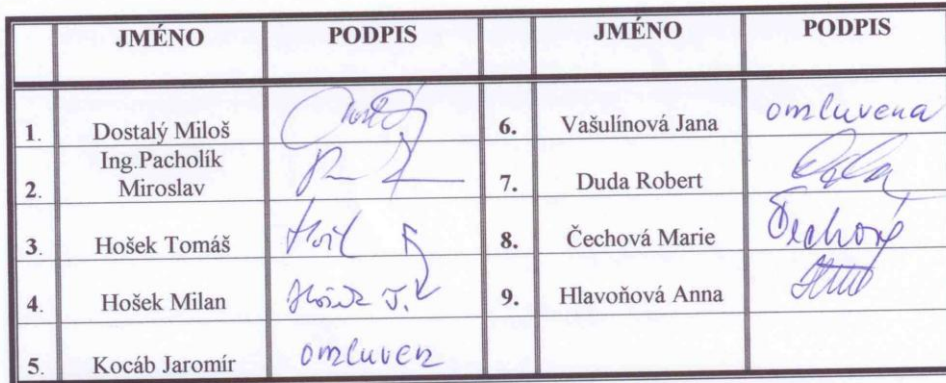 JMÉNO PODPIS JMÉNO PODPIS
1. Dostalý Miloš 6. Vašulínová Jana omluvena
2. Ing.Pacholík
Miroslav 7. Duda Robert
3. Hošek Tomáš 8. Čechová Marie Čechová
4. Hošek Milan 9. Hlavoňová Anna
5. Kocáb Jaromír omluven